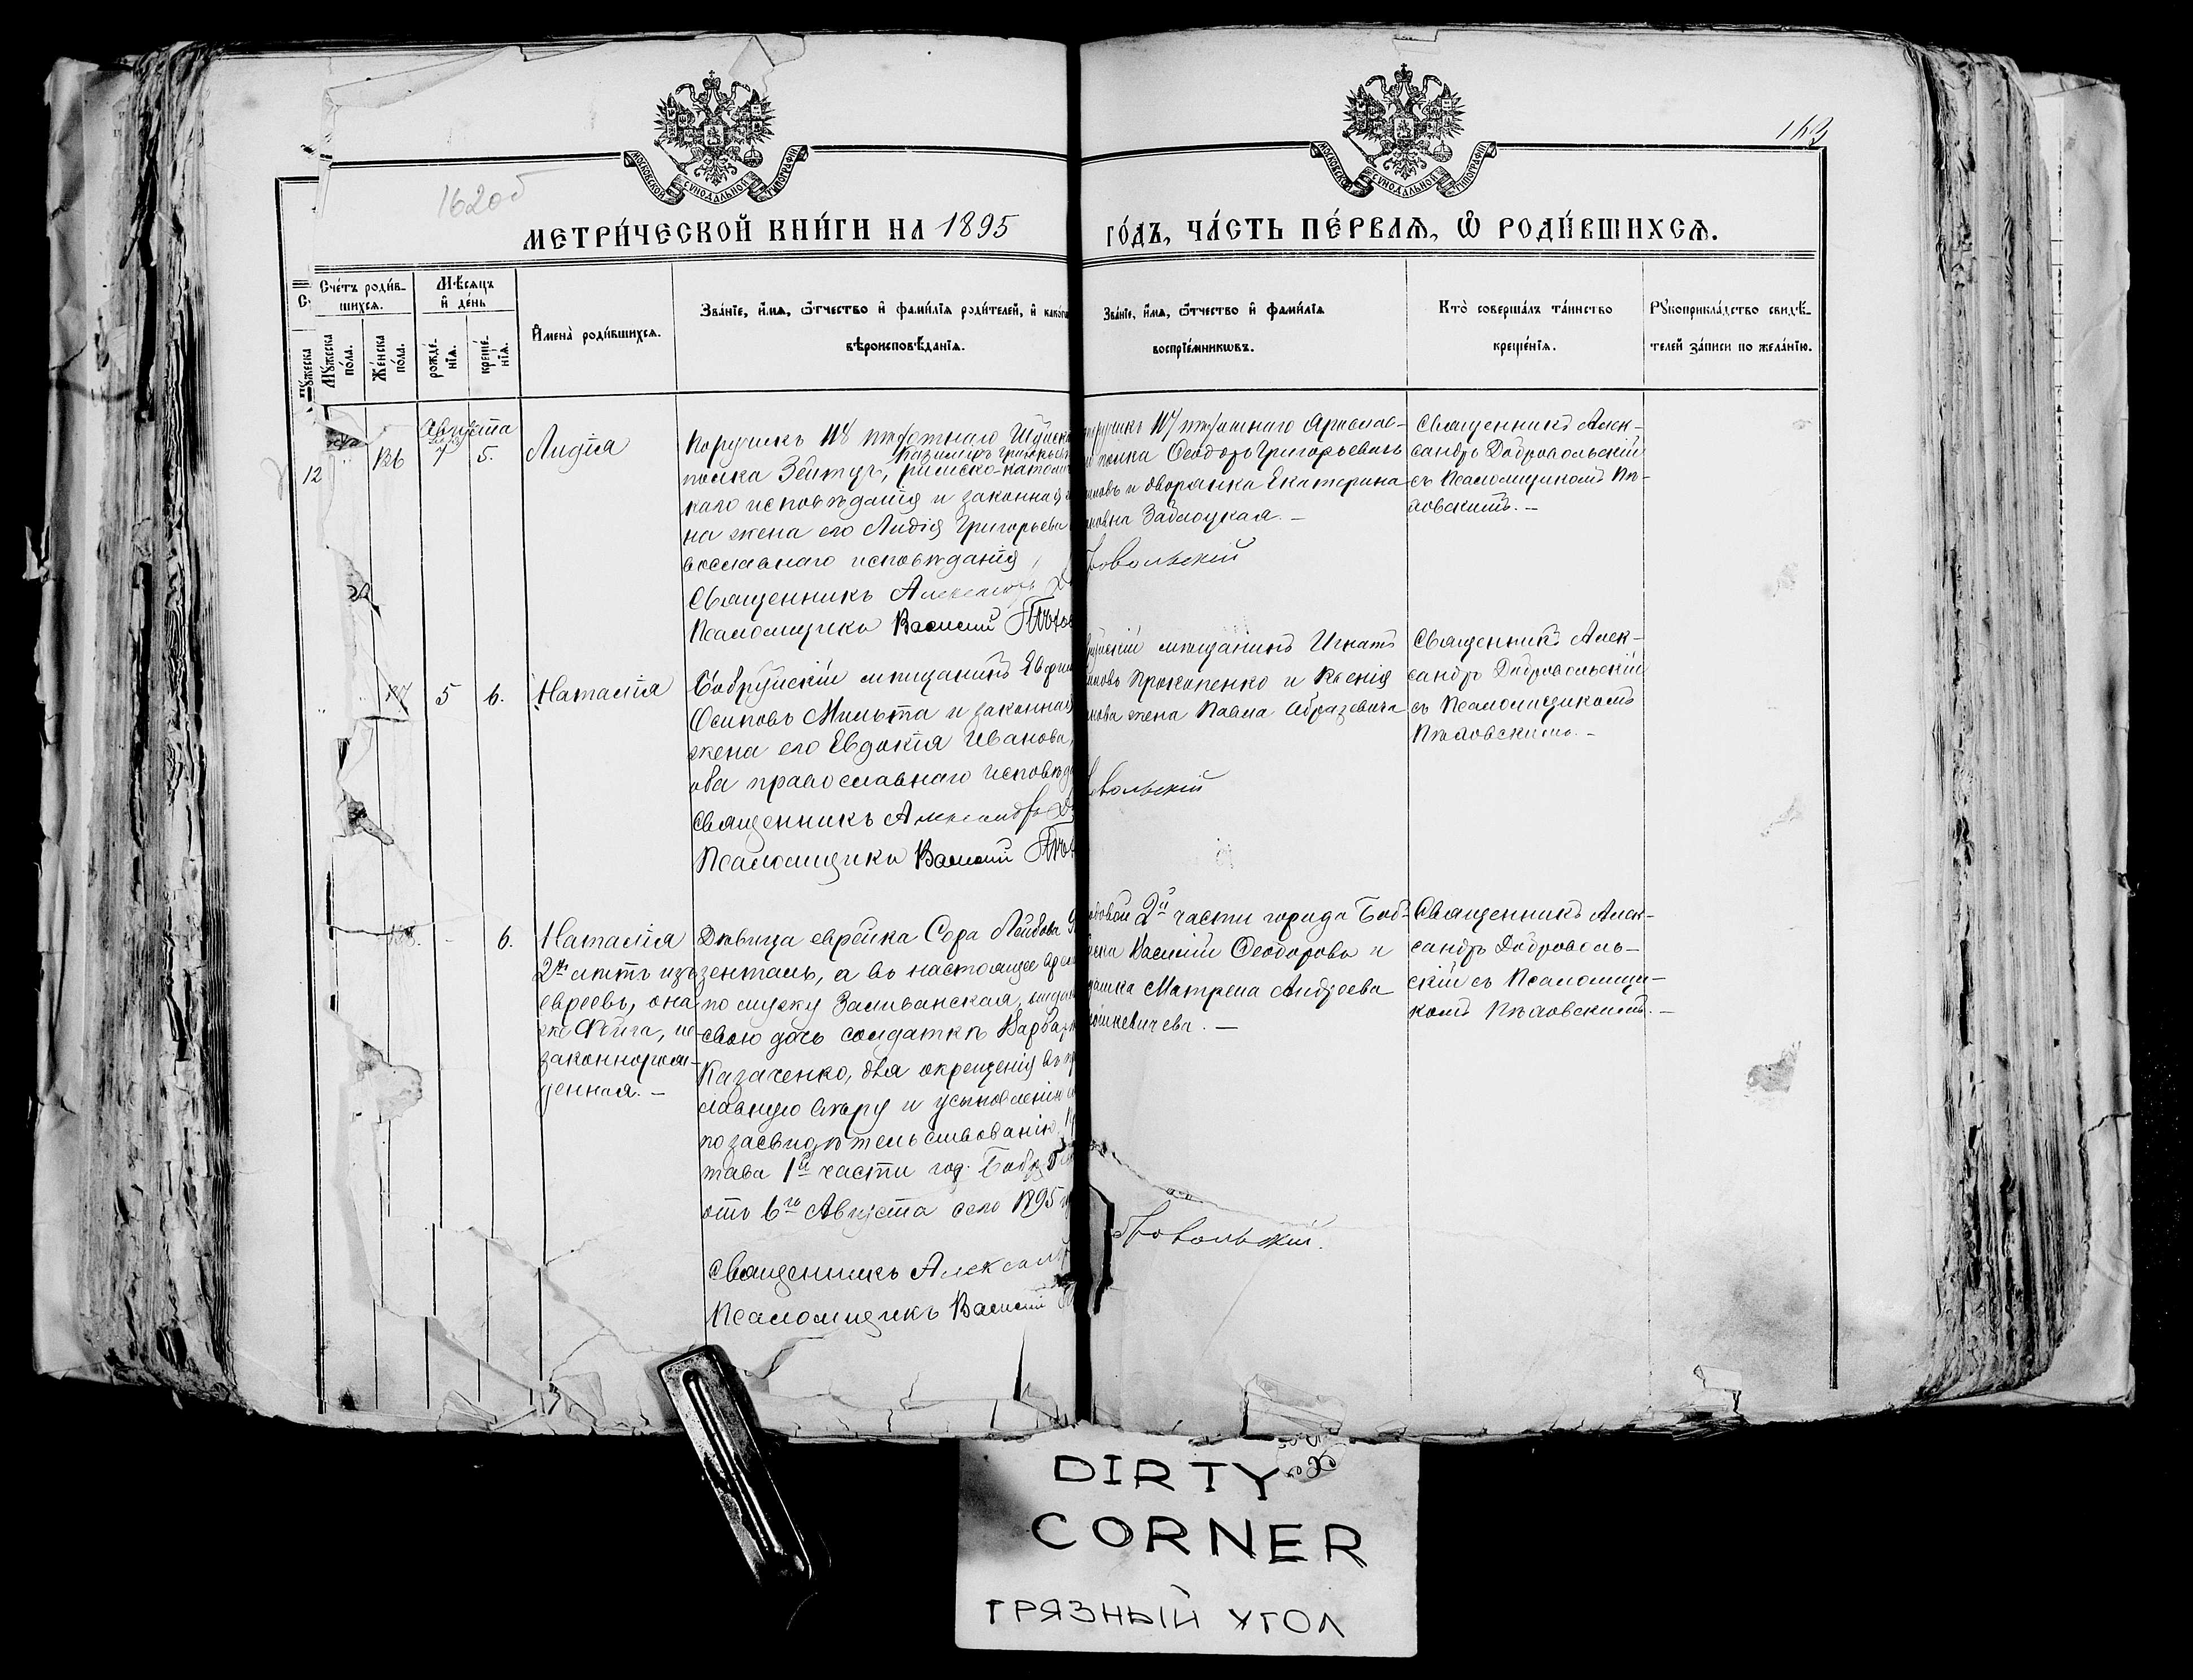 МОСКОВСКОЙ СУНОДАЛЬНОЙ ТИПОГРАФІИ
МОСКОВСКОЙ СУНОДАЛЬНОЙ ТИПОГРАФІИ
163
162об
МЕТРИ́ЧЕСКОЙ КНИ́ГИ НА 1895
ГО́ДЪ, ЧА́СТЬ ПЕ́РВАѦ, Ѽ РОДИ́ВШИХСѦ.
Сче́тъ роди́в-
шихсѧ.
Мѣ́сѧцъ
и҆ де́нь
Мꙋ́жеска
по́ла.
Же́нска
по́ла.
рожде́-
нїѧ.
креще́-
нїѧ.
И҆мена̀ роди́вшихсѧ.
Зва́нїе, и҆́мѧ, ѻ҆́тчество и҆ фами́лїѧ роди́телей, и҆ како́гѡ
вѣроисповѣ́данїѧ.
Зва́нїе, и҆́мѧ, ѻ҆́тчество и҆ фами́лїѧ
воспрїе́мникѡвъ.
Кто̀ соверша́лъ та́инство
креще́нїѧ.
Рꙋкоприкла́дство свидѣ́-
телей за́писи по жела́нїю.
Августа
12
5.
Лидія
Поручикъ 118 пѣхотнаго Шуйска
Казиміръ Григорьев
полка Зейтцъ, римско-католич
каго исповѣданія и законная
на жена его Лидія Григорьева
вославнаго исповѣданія
Священникъ Александръ
Псаломщикъ Василій
117 пѣхотнаго Ярослав-
полка Ѳеодоръ Григорьевичъ
и дворянка Екатерина
Заблоцкая. —
бовольскій
Священникъ Алек-
сандръ Добровольскій
съ Псаломщикомъ Пѣ-
ховскимъ. —
137
5
6.
Наталія
Бобруйскій мѣщанинъ Евфим
Осиповъ Мильта и законная
жена его Евдокія Иванова,
оба православнаго исповѣда
Священникъ Александръ
Псаломщикъ Василій
мѣщанинъ Игнатъ
Прокопенко и Ксенія
жена Павла Абразевича
вольскій
Священникъ Алек-
сандръ Добровольскій
съ Псаломщикомъ
Пѣховскимъ. —
138.
6.
Наталія
2хъ лѣтъ изъ
евреевъ, она
же Фейга, не
законнорож-
денная. —
Дѣвица еврейка Сора Лейбова
зенталь, а въ настоящее время
по мужу Заливанская, отдан
свою дочь солдаткѣ Варвар
Казаченко, для окрещенія въ пр
славную вѣру и усыновленія
по засвидѣтельствованію
тава 1й части гор. Бобр
отъ 6го Августа сего 1895 г
Священникъ Александ
Псаломщикъ Василій
2й части города Боб-
Василій Ѳеодоровъ и
Матрена Андреева
Священникъ Алек-
сандръ Доброволь-
скій съ Псаломщи-
комъ Пѣховскимъ. —
бровольскій.
DIRTY
CORNER
ГРЯЗНЫЙ УГОЛ